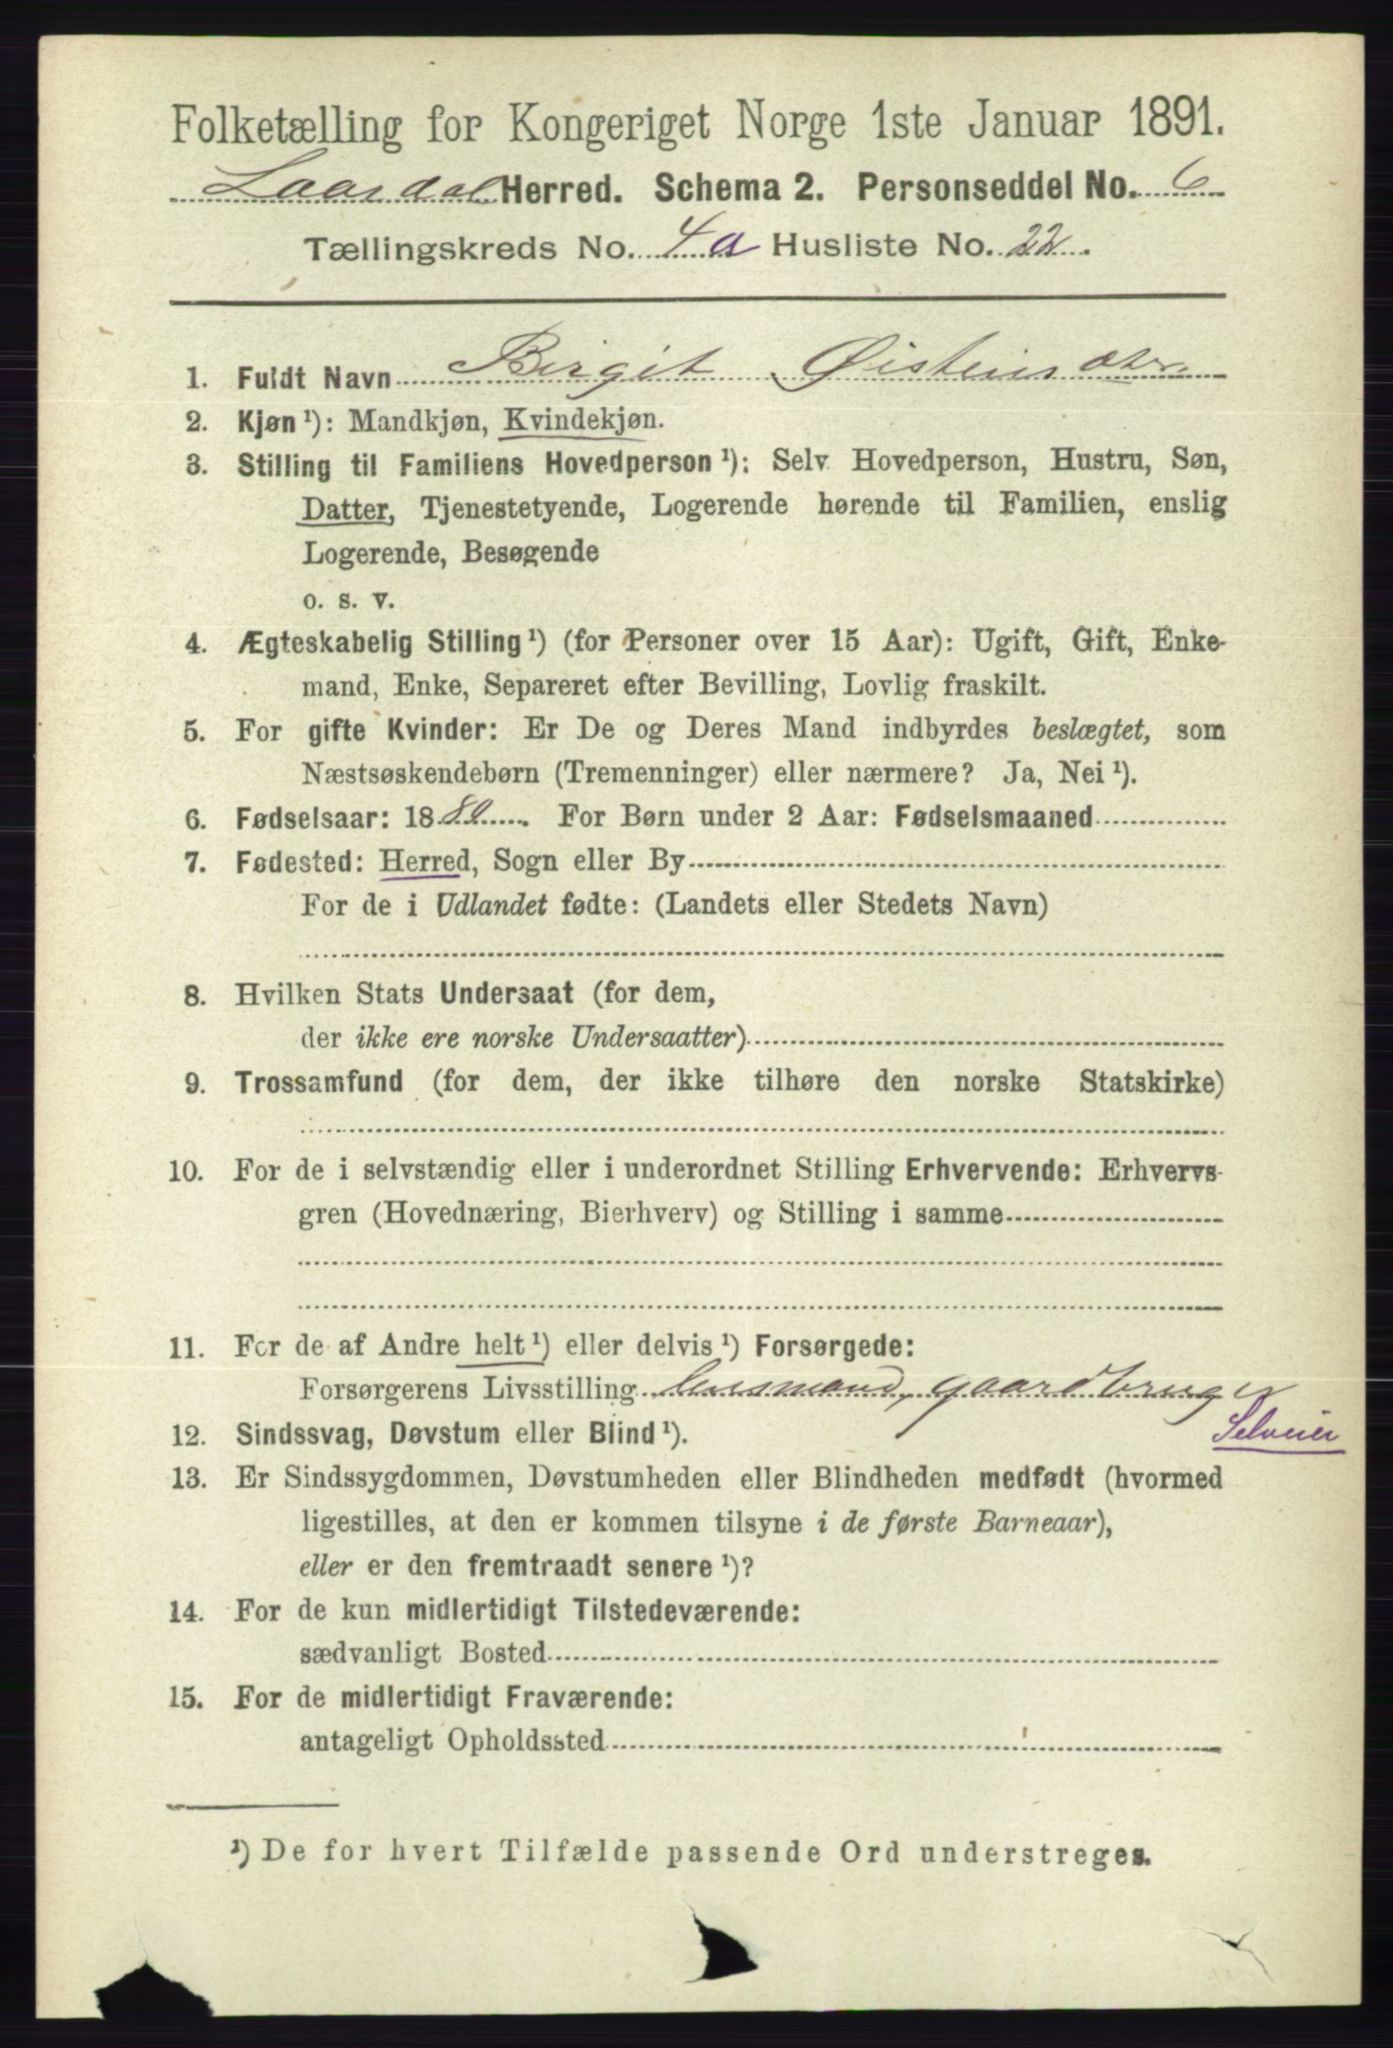 Folketælling for Kongeriget Norge 1ste Januar 1891.
Laardal Herred. Schema 2. Personseddel No. 6
Tællingskreds No. 4a Husliste No. 22.
1. Fuldt Navn Birgit Øisteinsdtr.
2. Kjøn ¹): Mandkjøn, Kvindekjøn.
3. Stilling til Familiens Hovedperson ¹): Selv Hovedperson, Hustru, Søn,
Datter, Tjenestetyende, Logerende hørende til Familien, enslig
Logerende, Besøgende
o. s. v.
4. Ægteskabelig Stilling ¹) (for Personer over 15 Aar): Ugift, Gift, Enke-
mand, Enke, Separeret efter Bevilling, Lovlig fraskilt.
5. For gifte Kvinder: Er De og Deres Mand indbyrdes beslægtet, som
Næstsøskendebørn (Tremenninger) eller nærmere? Ja, Nei ¹).
6. Fødselsaar: 18 For Børn under 2 Aar: Fødselsmaaned
7. Fødested: Herred, Sogn eller By
For de i Udlandet fødte: (Landets eller Stedets Navn)
8. Hvilken Stats Undersaat (for dem,
der ikke ere norske Undersaatter)
9. Trossamfund (for dem, der ikke tilhøre den norske Statskirke)
10. For de i selvstændig eller i underordnet Stilling Erhvervende: Erhvervs-
gren (Hovednæring, Bierhverv) og Stilling i samme
11. For de af Andre helt ¹) eller delvis ¹) Forsørgede:
Forsørgerens Livsstilling Lensmand, gaardbruger
Selveier
12. Sindssvag, Døvstum eller Blind ¹).
13. Er Sindssygdommen, Døvstumheden eller Blindheden medfødt (hvormed
ligestilles, at den er kommen tilsyne i de første Barneaar),
eller er den fremtraadt senere ¹)?
14. For de kun midlertidigt Tilstedeværende:
sædvanligt Bosted
15. For de midlertidigt Fraværende:
antageligt Opholdssted
¹) De for hvert Tilfælde passende Ord understreges.